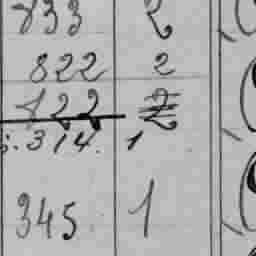 833 2
822 2
122 2
314. 1
345 1